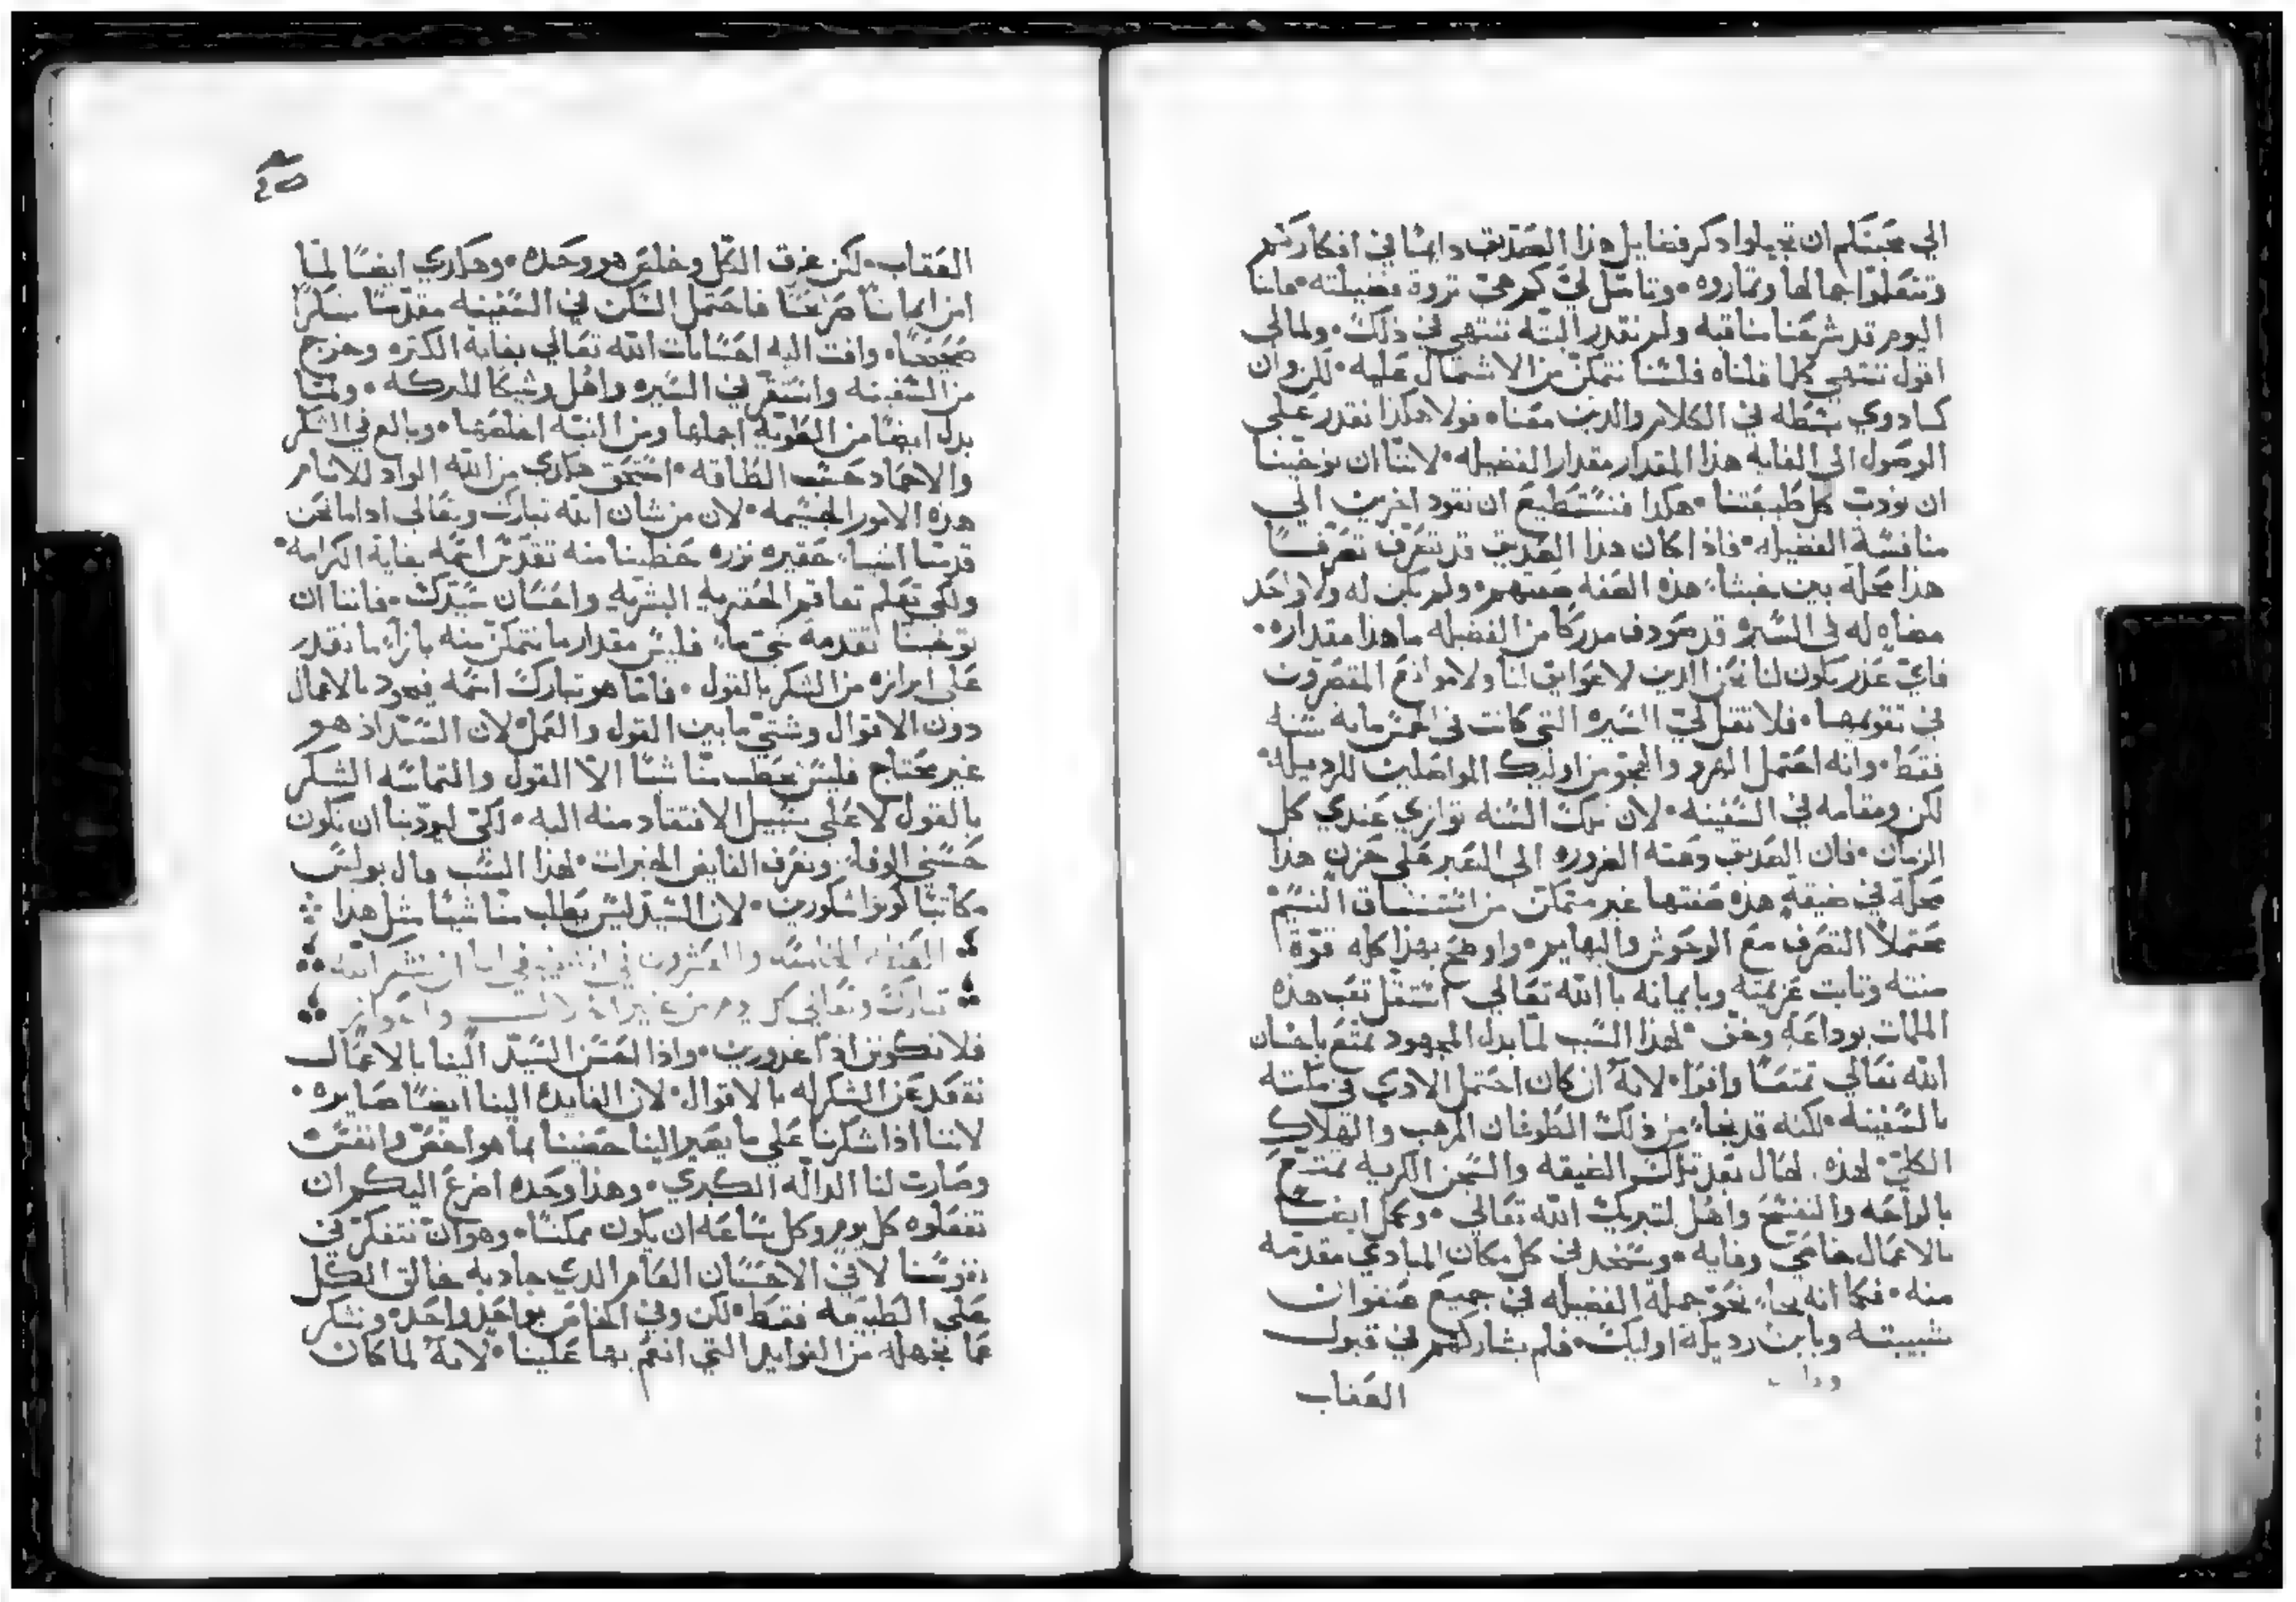 الي محبتكم ان تجيلوا ذكر فضايل هذا الصديق دايمًا في افكاركم
وتتعلموا جمالها وتماروه٠ وتامّل ليَّ كم هيَ تروة فضيلته٠ فاننا
اليوم قد شرحنا مناقبه ولم نقدر البتّه ننتهي في ذلك٠ ولما لي
اقول ننتهي كلما قلناه فلسنا نتمكّن من الاشتمال عليه٠ لكن وان
كنا دوي بسَطه في الكلام والدين معَناه فولا هكذا نقدر على
الوصول الى الغايه هذا المقدار مقدار الفضيله٠ لاننا ان توخينا
ان نودب كل طبيعَتنا٠ هكدا فنستطيع ان نقود اخرين الي
منافسَة الفضيله٠ فاذا كان هذا الصديق قد تصَرف تصَرفًا
هذا محَله بين خبثاء هذه الصفه صفتهم٠ ولم يكن له ولا واحَد
مضاهٍ له في السيره قد صودف مدركًا من الفضيله ما هذا مقداره٠
فاي عذر يكون لنا نحن الدين لا عَوايق لنا ولا موانع المقصّرون
في تقويمها٠ فلا تقل ليَ السيره التي كانت في خمس مايه سَنه
فقط٠ وانه احتمل الهزو والهجو من اوليك المواصلين للرديله٠
لكن ومقامه في السَفينه٠ لان تلك السَنه توازي عَندي كل
الزمان٠ فان الصديق دعَته الضروره الى الصَبر عَلى حَزن هذا
محَله في ضيقةٍ هذه صفتها غير متمكّن من استنساق النسيم
محتملاً التصَرف معَ الوحَوش والبهايم٠ واوضحَ بهذا كله قوّة
منته وثابت عَزيمته وبايمانه با الله تعَالي استقل تعَب هذه
الملمات بوداعَةٍ وخف٠ لهذا السَبب لما بدل المجهود تمتع باحسَان
الله تعَالي تمتعًا وافرا٠ لانهُ ان كان احتمل الادي في مكثه
بالسَفينه٠ لكنه قد نجاء من ذلك الطوفان المرهب والهلاك
الكليّ لهذه٠ لحال بعَد تلك الضيقه والسَجن الكريه تمتّع
بالراحَه والتفسح واهُل لتبريك الله تعَالي٠ وعمل ايضًا
بالاعَمال خاصَتي وفايه٠ وستجد في كل مكان المبادي مقدمه
منه٠ فكما انه نجاء نحو جملة الفضيله في جميعَ عنفوان
شبيبته وباين رديلة اوليك٠ فلم يشاركهم في قبول
العَقاب
العَقاب٠ لكن غرق الكل وخلصَ هو وحَده٠ وهكدي ايضًا لما
امن ايمانًا صَرعًا فاحتمل السَكن في السَفينه مقدّمًا شكرًا
صَحيحًا٠ وافت اليه احسانات الله تعَالي بغاية الكتره وخرج
من السَفينه واستقر في السيره واهُل وشيكًا للبركه٠ ولما
بدل ايضًا من الطويّه اجملها ومن النيّه اخلصَها٠ وبالع في الشكر
والاحماد حسَب الطاقه٠ استحق هكدي من الله الواد للانام
هذه الامور الجسيمه٠ لان من شان الله تبارك وتعَالي ادا ما نحَن
قدمنا اشيا حَقيره نزره حَظينا منه تقدّس اسمَه بغاية الكرامه٠
ولكي تعَلم تفاقم الحَقريه البشريه واحسَان سَيدك٠ فاننا ان
توخينا تقدمة شيٍ ما٠ فليسَ مقدار ما نتمكّن منه بازآء ما نقدر
عَلى ابرازه من الشكر بالقول٠ فامّا هو تبارك اسمَه فيجود بالاعَمال
دون الاقوال وشتيّ ما بين القول والعَمل٠ لان السَيّد اذ هو
غير محتاج فليسَ يطلب منا شيًا الاّ القول والتماسَه الشكر
بالقول لا عَلى سَبيل الافتقاد منه اليه٠ لكي ليودّبنا ان نكون
حَسَني الوفاء ونعَرف الفايض الخيرات٠ لهذا السَبب قال بولسَ
مكاتبًا كونوا شكورين٠ لان السَيّد ليسَ يطلب منا شيًا مثل هذا
العَظه الخامسَه والعَشرون في انه ينبغي لنا ان نشكر الله
تبارك وتعَالي كل يوم من غير ان
فلا نكونن اذًا غدورين٠ واذا احَسَن السَيّد الينا بالاعَمال
نقعَد عَن الشكر له بالاقوال٠ لان الفايدة الينا ايضًا صَايره٠
لاننا اذا شكرنا عَلي ما يصَير الينا حَضينا بما هو اخصّ وانفسَ
وصَارت لنا الدالّه الكبري٠ وهذا وحَده اضرعَ اليكم ان
تفعَلوه كل يوم وكل سَاعَه ان يكون ممكنًا٠ وهو ان نتفكّر في
نفوسَنا لا في الاحسَان العَام الدي جاد به خالق الكل
عَلى الطبيعَه فقط٠ لكن وفي الخاصّ بواحَد واحَد٠ ونشكر
عَما نجهله من الفوايد التي انعَم بها عَلينا٠ لانهُ لما كان